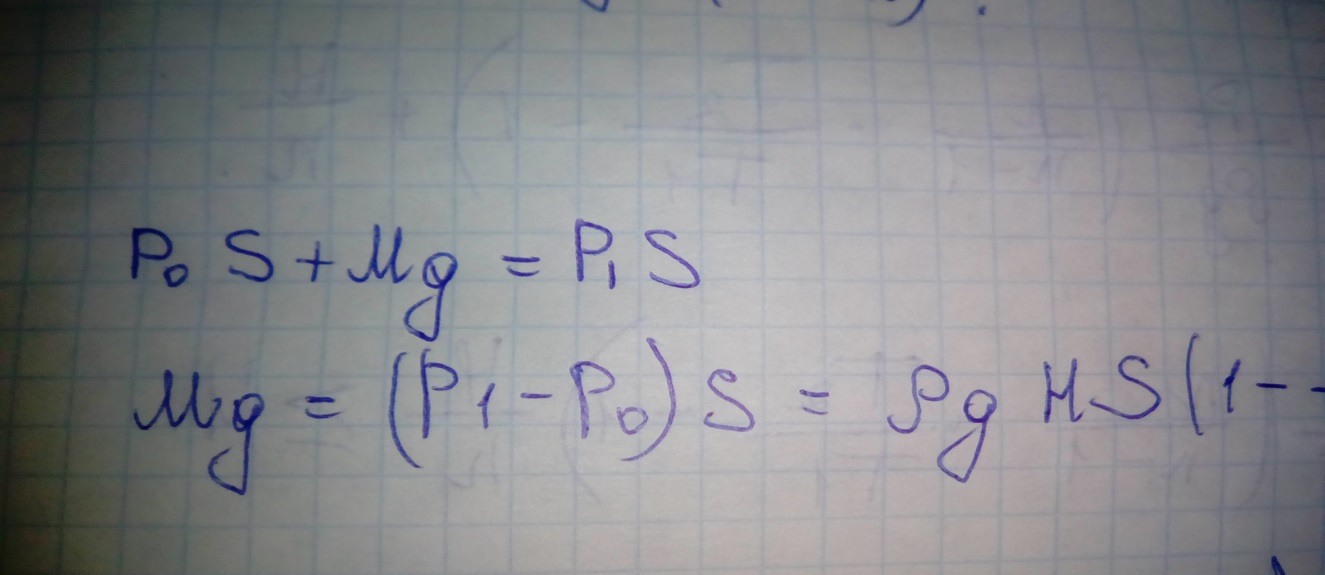 P₀ S + Mg = P₁ S
Mg = (P₁ - P₀) S = ρg HS (1 -